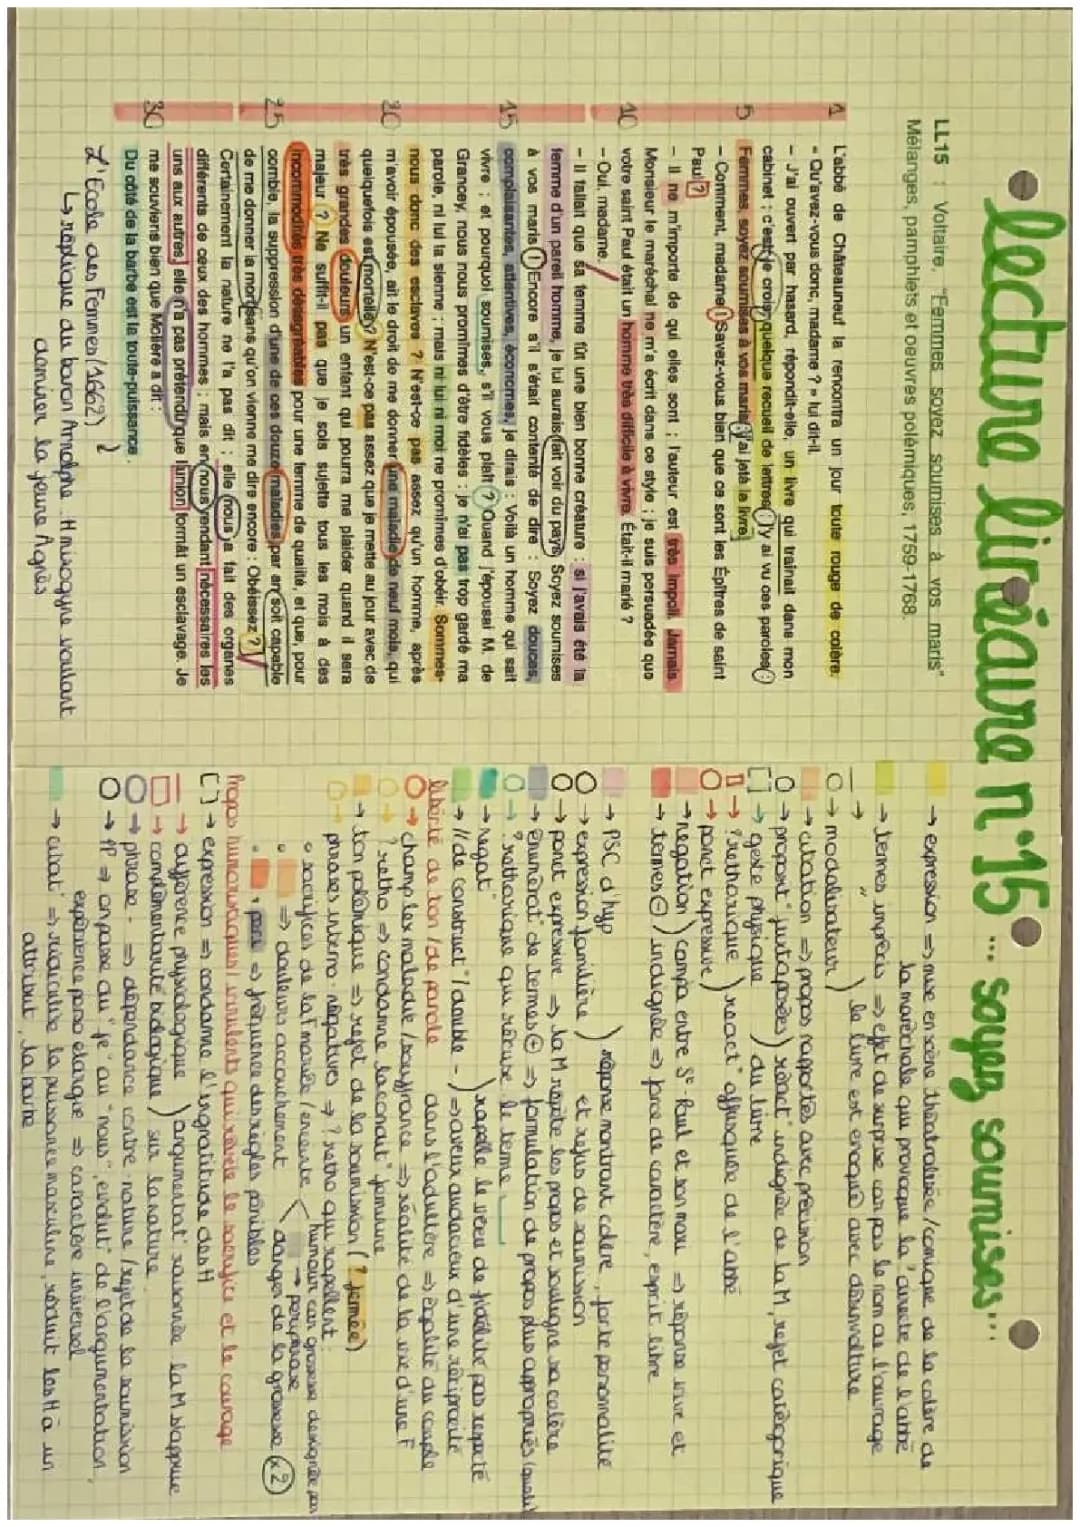 lecture linéaire n°15 ... soyez soumises...
LL15 : Voltaire, "Femmes soyez soumises à vos maris"
Mélanges, pamphlets et oeuvres polémiques, 1759-1768.
1 L'abbé de Châteauneuf la rencontra un jour toute rouge de colère.
« Qu'avez-vous donc, madame ? » lui dit-il.
- J'ai ouvert par hasard, répondit-elle, un livre qui traînait dans mon
cabinet ; c'est, je crois, quelque recueil de lettres ; j'y ai vu ces paroles :
5 Femmes, soyez soumises à vos maris ; j'ai jeté le livre.
- Comment, madame ! Savez-vous bien que ce sont les Épîtres de saint
Paul ?
- Il ne m'importe de qui elles sont ; l'auteur est très impoli. Jamais
Monsieur le maréchal ne m'a écrit dans ce style ; je suis persuadée que
10 votre saint Paul était un homme très difficile à vivre. Était-il marié ?
- Oui, madame.
- Il fallait que sa femme fût une bien bonne créature : si j'avais été la
femme d'un pareil homme, je lui aurais fait voir du pays. Soyez soumises
à vos maris ! Encore s'il s'était contenté de dire : Soyez douces,
complaisantes, attentives, économes, je dirais : Voilà un homme qui sait
15 vivre ; et pourquoi soumises, s'il vous plaît ? Quand j'épousai M. de
Grancey, nous nous promîmes d'être fidèles : je n'ai pas trop gardé ma
parole, ni lui la sienne ; mais ni lui ni moi ne promîmes d'obéir. Sommes-
nous donc des esclaves ? N'est-ce pas assez qu'un homme, après
m'avoir épousée, ait le droit de me donner une maladie de neuf mois, qui
20 quelquefois est mortelle ? N'est-ce pas assez que je mette au jour avec de
très grandes douleurs un enfant qui pourra me plaider quand il sera
majeur ? Ne suffit-il pas que je sois sujette tous les mois à des
incommodités très désagréables pour une femme de qualité, et que, pour
comble, la suppression d'une de ces douze maladies par an soit capable
25 de me donner la mort sans qu'on vienne me dire encore : Obéissez ?
Certainement la nature ne l'a pas dit ; elle nous a fait des organes
différents de ceux des hommes ; mais en nous rendant nécessaires les
uns aux autres, elle n'a pas prétendu que l'union formât un esclavage. Je
me souviens bien que Molière a dit :
30 Du côté de la barbe est la toute-puissance.
L'Ecole des Femmes (1662)
↳ réplique du baron Arnolphe. H misogyne voulant
dominer la jeune Agnès
→ expression => mise en scène théatralisée / comique de la colère de
la maréchale qui provoque la directe de l'abbé
→ termes imprécis => effet de surprise car pas le nom de l'ouvrage
→ " ) le livre est évoqué avec désinvolture
→ modalisateur
→ citation => propos rapportés avec précision
→ proposit° juxtaposées ) réact° indignée de la M, rejet catégorique
[] → geste physique ) du livre
→ ? rethorique ) react° offusquée de l'abbé
→ ponct expressive
→ négation ) compa entre St Paul et son mari => réponse vive et
→ termes ⊖ ) indignée => force de caractère, esprit libre
→ PSC d'hyp
→ expression familière ) réponse montrant colère, forte personnalité
et refus de soumission
→ ponct expressive => la M répète les propos et souligne sa colère
→ énumérat° de termes ⊕ => formulation de propos plus appropriés
→ ? rethorique qui récuse le terme
→ négat° ) rappelle le vœu de fidélité pas respecté
→ // de construct° / double - ) => aveux audacieux d'une réciprocité
liberté de ton / de parole dans l'adultère => égalité du couple
→ champ lex maladie / souffrance => réalité de la vie d'une F
→ ? retho => condamne la condit° féminine
→ ton polémique => rejet de la soumission (? fermée)
→ phrases interro-négatives => ? retho qui rappellent :
• sacrifices de la F mariée / enceinte < humour car grossesse désignée par périphrase
danger de la grossesse (x2)
• => douleurs accouchement
• => fréquence des règles pénibles
Propos humoristiques / virulents qui révèle le sacrifice et le courage
[] → expression => condamne l'ingratitude des H
→ différence physiologique ) argumentat° raisonnée la M s'appuie
→ complémentarité biologique ) sur la nature
→ phrase - => dépendance contre-nature / rejet de la soumission
→ PP => on passe du "je" au "nous", évolut° de l'argumentation,
expérience perso élargie => caractère universel
→ citat° => ridiculise la puissance masculine, réduit les H à un
attribut, la barbe